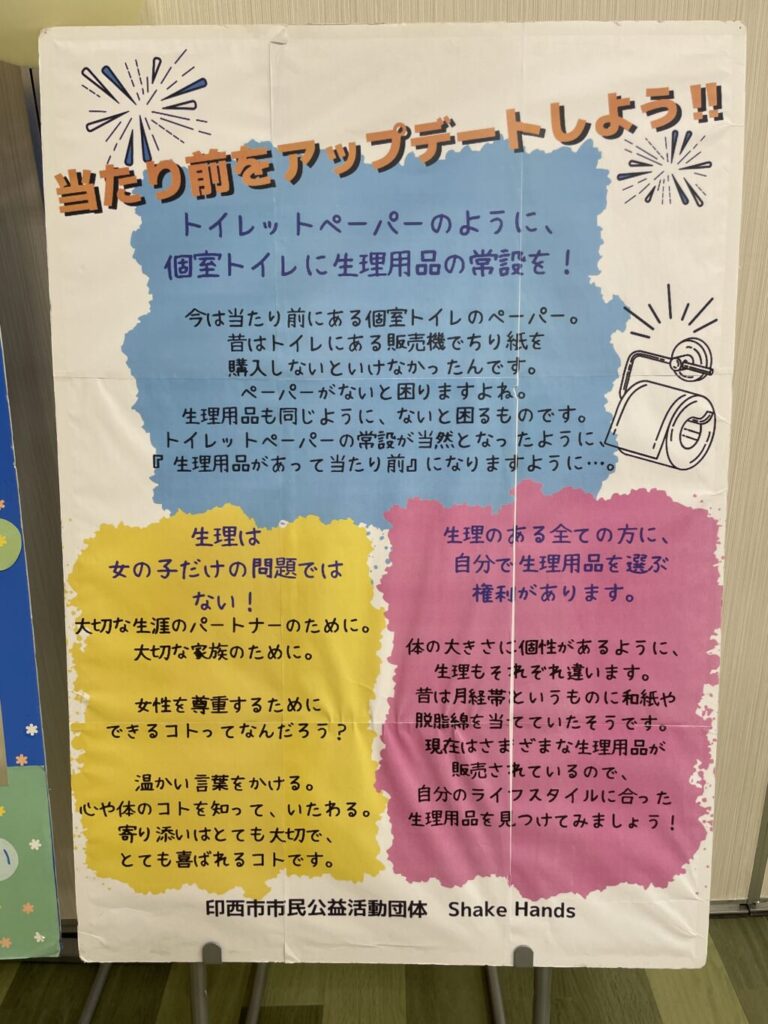 当たり前をアップデートしよう!!
トイレットペーパーのように、
個室トイレに生理用品の常設を！
今は当たり前にある個室トイレのペーパー。
昔はトイレにある販売機でちり紙を
購入しないといけなかったんです。
ペーパーがないと困りますよね。
生理用品も同じように、ないと困るものです。
トイレットペーパーの常設が当然となったように、
『生理用品があって当たり前』になりますように…。
生理は
女の子だけの問題では
ない！
大切な生涯のパートナーのために。
大切な家族のために。
女性を尊重するために
できるコトってなんだろう？
温かい言葉をかける。
心や体のコトを知って、いたわる。
寄り添いはとても大切で、
とても喜ばれるコトです。
生理のある全ての方に、
自分で生理用品を選ぶ
権利があります。
体の大きさに個性があるように、
生理もそれぞれ違います。
昔は月経帯というものに和紙や
脱脂綿を当てていたそうです。
現在はさまざまな生理用品が
販売されているので、
自分のライフスタイルに合った
生理用品を見つけてみましょう！
印西市市民公益活動団体　Shake Hands